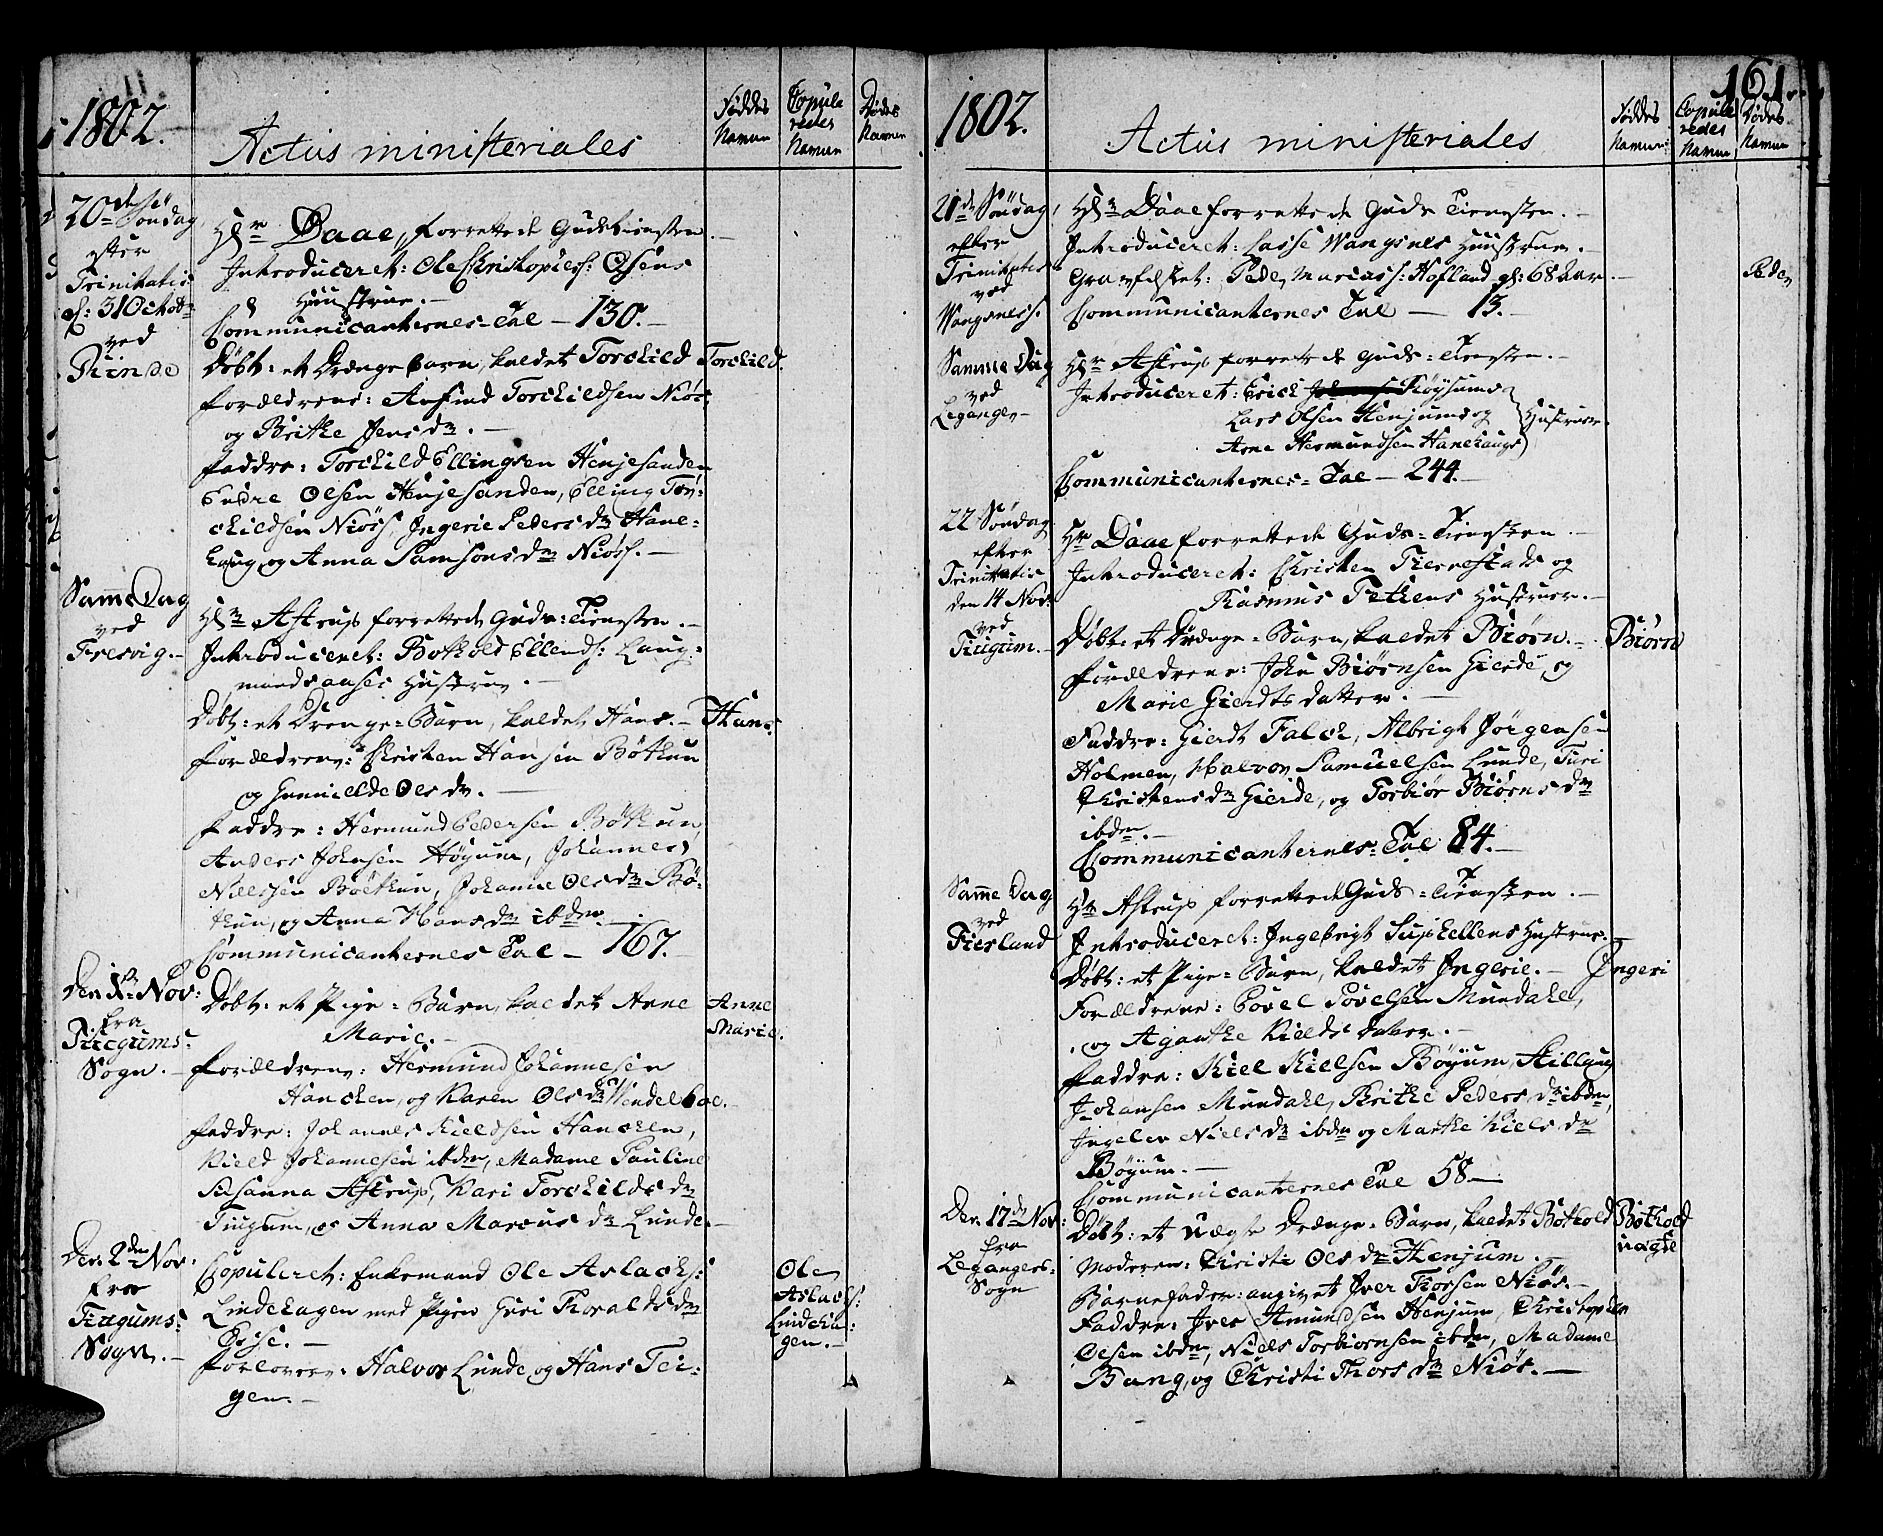 1802.
Actus ministeriales
Føddes Namen
Copuleredes Namen
Dødes Namen
20de Søndag
efter
Trinitatis
d: 31 Octobr
ved
Rinde
Hr Daae, forrettede Gudstienesten
Introduceret: Ole Christophers: Osens
Hustrue.
Communicanternes Tal – 130. –
Døbt: et Drænge Barn, kaldet Torchild
Torchild.
Forældrene: Anfind Torchildsen Niøs,
og Brithe Jens dr. –
Faddre: Torchild Ellingsen Henjesanden
Endre Olsen Henjesanden, Elling Tor-
childsen Niøs, Ingerie Peders dr Hane-
haug, og Anna Samsons dr Niøs. –
Samme Dag
ved
Fresvig. –
Hr Astrup forrettede Guds-Tienesten. –
Introduceret: Bothold Ellends: Laug-
mandsanses Hustrue. –
Døbt: et Drenge-Barn, kaldet Hans. –
Hans
Forældrene: Christen Hansen Bøthun
og Gunnilde Ols dr. –
Faddre: Hermund Pedersen Bøthun,
Anders Johnsen Høyum, Johannes
Nielssen Bøethun, Johanne Ols dr Bø-
thun, og Anna Hans dr ibdm.
Communicanternes Tal – 167. –
Den 1te Nov:
fra
Tiugums-
Sogn. –
Døbt: et Pige-Barn, kaldet Anne
Marie. –
Anne
Marie.
Forældrene: Hermund Johannesen
Hanchen, og Karen Ols dr Vindelboe. –
Faddre: Johannes Kieldsen Hanchen,
Kield Johannesen ibdm, Madame Pauline
Susanna Astrup, Kari Torchilds dr
Tiugum, og Anna Marcus dr Lunde. –
Den 2den Nov.
fra
Tiugums-
Sogn. –
Copuleret: Enkemand Ole Aslachs:
Lindehagen med Pigen Guri Thoralds dr
Esse. –
Ole
Aslachs:
Lindeha-
gen. –
Forlovere: Halvor Lunde, og Hans Tei-
gen. –
161.
1802.
Actus ministeriales
Føddes Namen
Copuleredes Namen
Dødes Namen
21de Søndag
efter
Trinitatis
ved
Wangsness.
Hr Daae forrettede Guds Tienesten. –
Introduceret: Lasse Wangsnes Huustrue. –
Gravfæstet: Peder Mariass: Hofland gl: 68 Aar. –
Peder
Communicanternes Tal – 13. –
Samme Dag
ved
Leganger –
Hr Astrup forrettede Guds-Tienesten. –
Introduceret: Erich Røysums
Lars Olsen Henjums og
Arne Hermundsen Hanehaugs
Hustruer.
Communicanternes-Tal – 244. –
22 Søndag
efter
Trinitatis
den 14 Nov:
ved
Tiugum. –
Hr Daae forrettede Guds-Tienesten. –
Introduceret: Christen Tierrestads og
Rasmus Tethens Hustruer. –
Døbt: et Drænge-Barn, kaldet Biørn. –
Biørn
Forældrene: John Biørnsen Gierde, og
Marie Gierdts datter. –
Faddre: Gierdt Falch, Albrigt Jørgensen
Holmen, Halvor Samuelsen Lunde, Turi
Christens dr Gierde, og Torbiør Biørns dr
ibdm. –
Communicanternes-Tal 84. –
Samme Dag
ved
Fierland
Hr Astrup forrettede Guds-Tienesten. –
Introduceret: Ingebrigt Suphellens Hustrue.
Døbt: et Pige-Barn, kaldet Ingerie. –
Ingeri
Forældrene: Povel Povelsen Mundahl,
og Aganthe Kields datter. –
Faddre: Kiel Kielsen Bøyum, Stillaug
Johansen Mundahl, Brithe Peders dr ibdm,
Ingelev Niels dr ibdm og Marthe Kiels dr
Bøyum. –
Communicanternes Tal 58 –
Den 17de Nov:
fra
Legangers-
Sogn
Døbt: et uægte Drænge-Barn, kaldet Bothold
Bothold
uægte
Moderen: Christi Ols dr Henjum. –
Barnefader: angivet Iver Thorsen Niøs. –
Faddre: Iver Amundsen Henjum, Christopher
Olsen ibdm, Niels Torbiørnsen ibdm, Madame
Bang, og Christi Thors dr Niøs. –